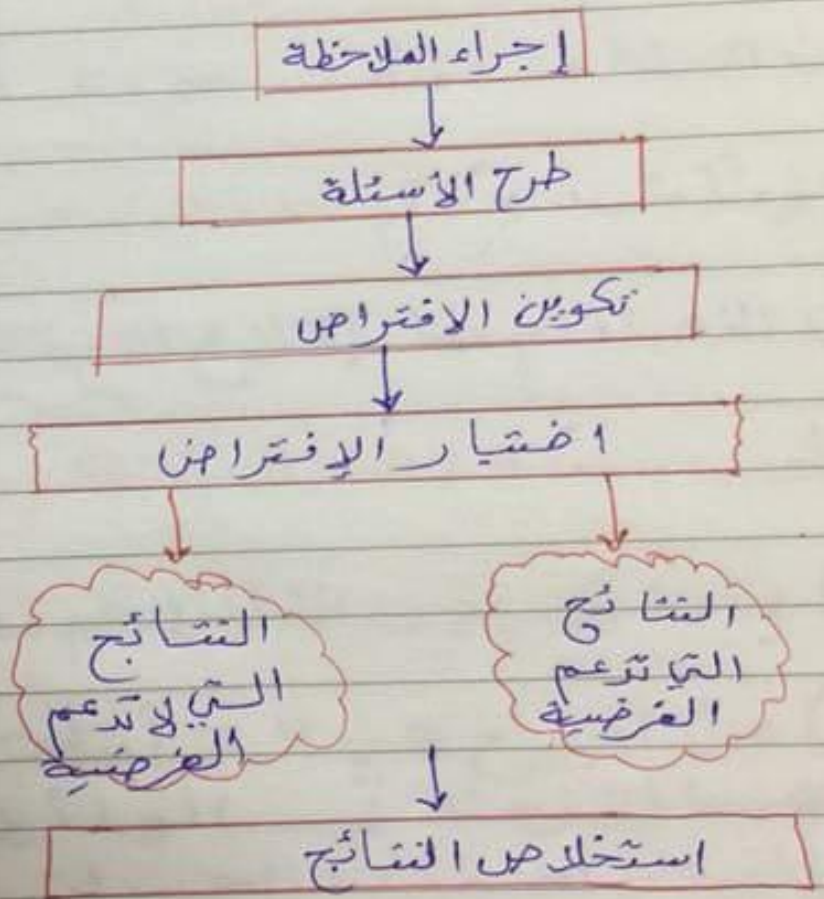 إجراء الملاحظة
طرح الأسئلة
تكوين الافتراض
اختبار الإفتراض
النتائج
التي تدعم
الفرضية
النتائج
التي لا تدعم
الفرضية
استخلاص النتائج